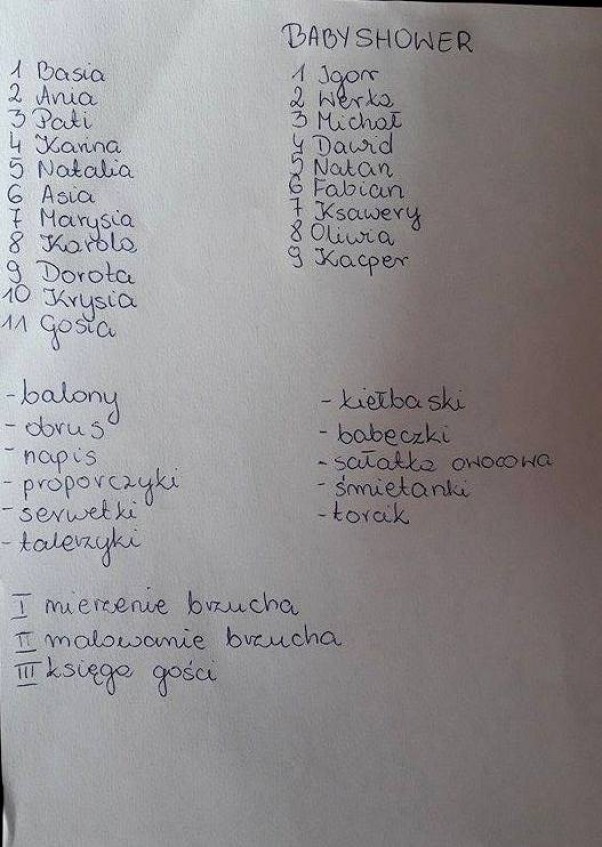 BABYSHOWER
1 Basia
2 Ania
3 Pati
4 Karina
5 Natalia
6 Asia
7 Marysia
8 Karola
9 Dorota
10 Krysia
11 Gosia
1 Igor
2 Werka
3 Michał
4 Dawid
5 Natan
6 Fabian
7 Ksawery
8 Oliwia
9 Kacper
- balony
- obrus
- napis
- proporczyki
- serwetki
- talerzyki
- kiełbaski
- babeczki
- sałatka owocowa
- śmietanki
- torcik
I mierzenie brzucha
II malowanie brzucha
III księga gości